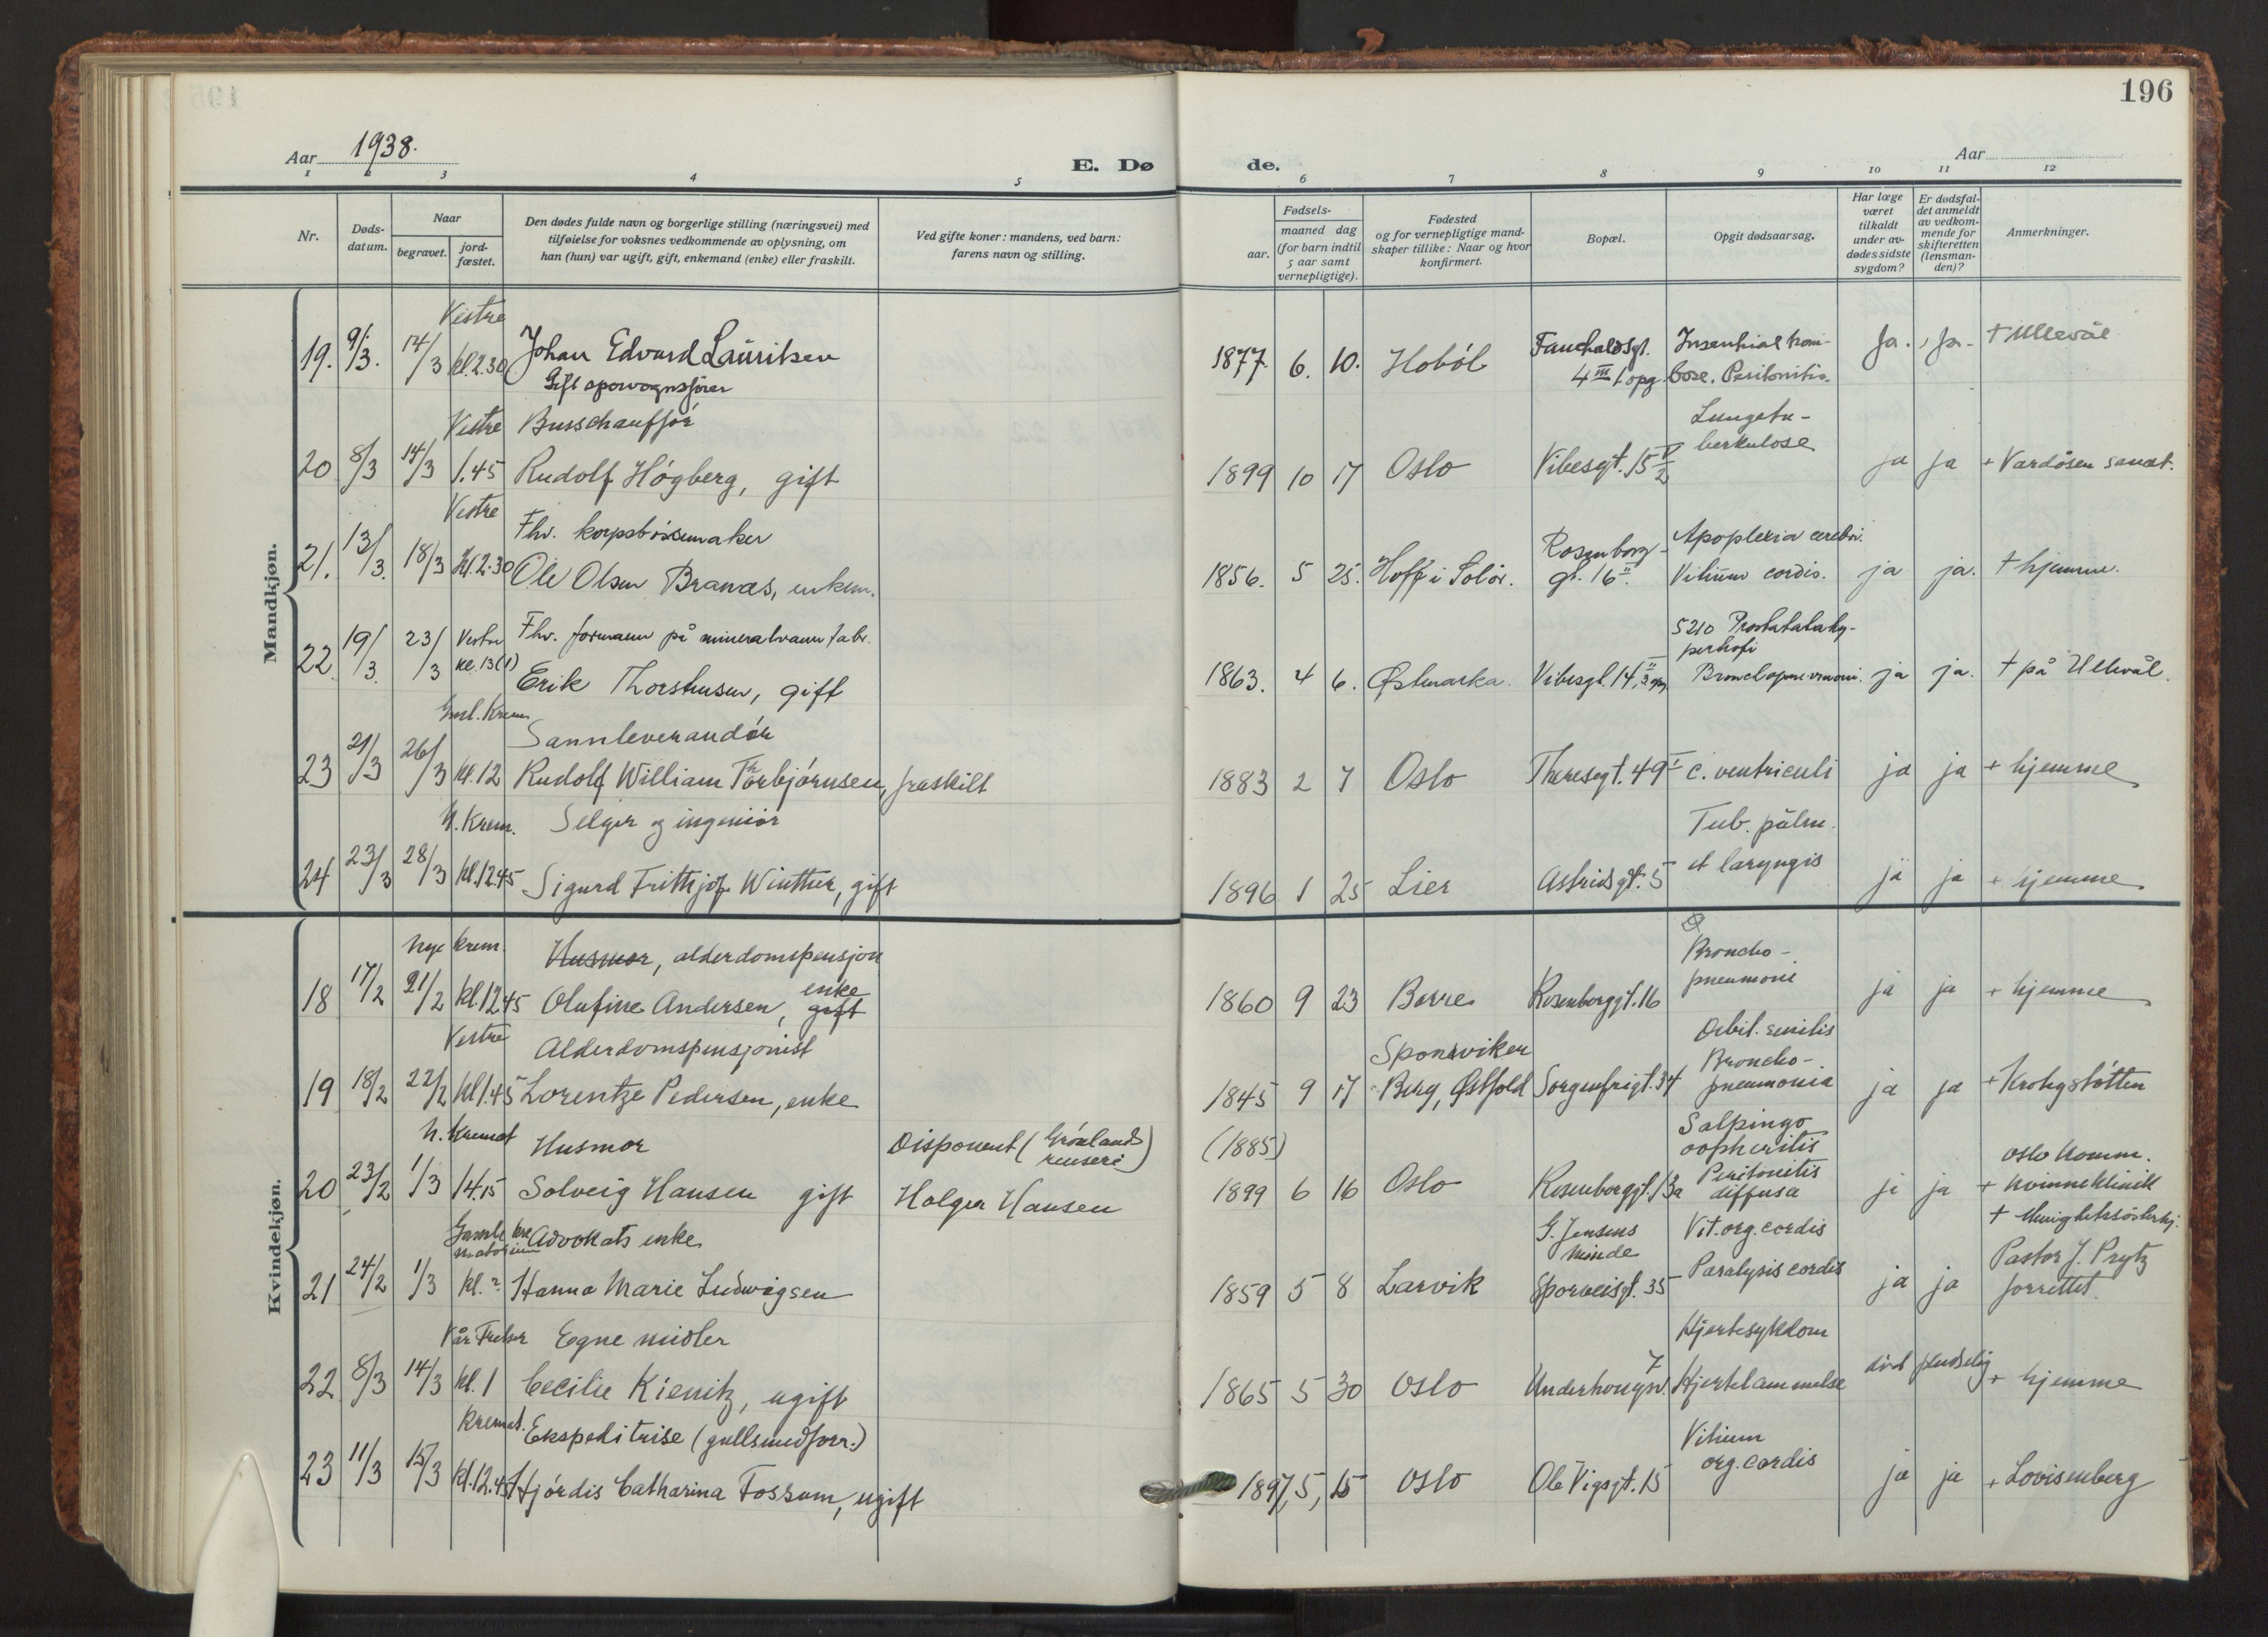 196
Aar 1938.
E. Døde.
Aar
1 2 3 4 5 6 7 8 9 10 11 12
Nr.
Døds-
datum.
Naar
begravet.
jord-
fæstet.
Den dødes fulde navn og borgerlige stilling (næringsvei) med
tilføielse for voksnes vedkommende av oplysning, om
han (hun) var ugift, gift, enkemand (enke) eller fraskilt.
Ved gifte koner: mandens, ved barn:
farens navn og stilling.
Fødsels-
aar.
maaned dag
(for barn indtil
5 aar samt
vernepligtige).
Fødested
og for vernepligtige mand-
skaper tillike: Naar og hvor
konfirmert.
Bopæl.
Opgit dødsaarsag.
Har læge
været
tilkaldt
under av-
dødes sidste
sygdom?
Er dødsfal-
det anmeldt
av vedkom-
mende for
skifteretten
(lensman-
den)?
Anmerkninger.
Mandkjøn.
Vestre
19. 9/3. 14/3 kl. 2.30 Johan Edvard Lauritsen
Gift sporvognsfører
1877. 6. 10. Hobøl
Fauchaldsgt.
4 III 1 opg.
bose. Peritonitis.
Ja. Ja. + Ullevål
Vestre Busschauffør
20 8/3 14/3 1.45 Rudolf Høgberg, gift
1899 10 17 Oslo Vibesgt. 15
Lungetu-
berkulose
ja ja + Vardåsen sanat.
Vestre Fhv. korpsbøssemaker
21. 13/3. 18/3 Kl. 2.30 Ole Olsen Branas, enkem.
1856. 5 25. Hoff i Solør.
Rosenborg-
gt. 16 II.
Apoplexia cerebri.
Vitium cordis.
ja ja. + hjemme.
Vestre Fhv. formann på mineralvann fabr.
22. 19/3. 23/3 kl. 13 (1) Erik Thorshusen, gift
1863. 4 6. Østmarka. Vibesgt. 14 II, 3 opg.
5210 Prostatahy-
pertrofi
ja ja. + på Ullevål.
Gml. Krem. Sannleverandør
23 21/3 26/3 Kl. 12 Rudolf William Thorbjørnsen, fraskilt
1883 2 7 Oslo Theresegt. 49 I C. ventriculi ja ja + hjemme
N. Krem. Selger og ingeniør
24 23/3 28/3 kl. 12.45 Sigurd Frithjof Winther, gift
1896 1 25 Lier Astridsgt. 5
Tub. pulm.
et laryngis
ja ja + hjemme
Kvindekjøn.
Nye krem. Husmor, alderdomspensjon
18 17/2 21/2 Kl. 12.45 Olufine Andersen, gift enke
1860 9 23 Borre Rosenborggt. 16
Broncho-
pneumoni
ja ja + hjemme
Vestre Alderdomspensjonist
19 18/2 22/2 Kl 1.45 Lorentze Pedersen, enke
1845 9 17
Sponviken
Berg, Østfold Sorgenfrigt. 34
Debil. senilis
Broncho-
pneumonia
ja ja + Krohgstøtten
N. Kremat Husmor
Disponent (Grønlands
renseri)
20 23/2 1/3 14.15 Solveig Hansen gift Holger Hansen
(1885)
1899 6 16 Oslo Rosenborggt. 13a
Salpingo
oophoritis
Peritonitis
diffusa
ja ja
Oslo komm.
+ kvinneklinik
Gamle krematorium Advokats enke
21 24/2 1/3 Kl. 2 Hanna Marie Ludwigsen
1859 5 8 Larvik
G. Jensens
Minde
Sporveisgt. 35
Vit. org. cordis
Paralysis cordis
ja ja
+ Menighetssøsterhj.
Pastor J. Prytz
forrettet.
Vår Frelser Egne midler
22 8/3 14/3 kl. 1 Cecilie Kienitz, ugift
1865 5 30 Oslo Underhaugsv. 7
Hjertesykdom
Hjertelammelse
død pludselig + hjemme
Kremat. Ekspeditrise (gullsmedforr.)
23 11/3 15/3 kl. 12.45 Hjørdis Catharina Fossum, ugift
1897, 5, 15 Oslo Ole Vigsgt. 15
Vitium
org. cordis
ja ja + Lovisenberg